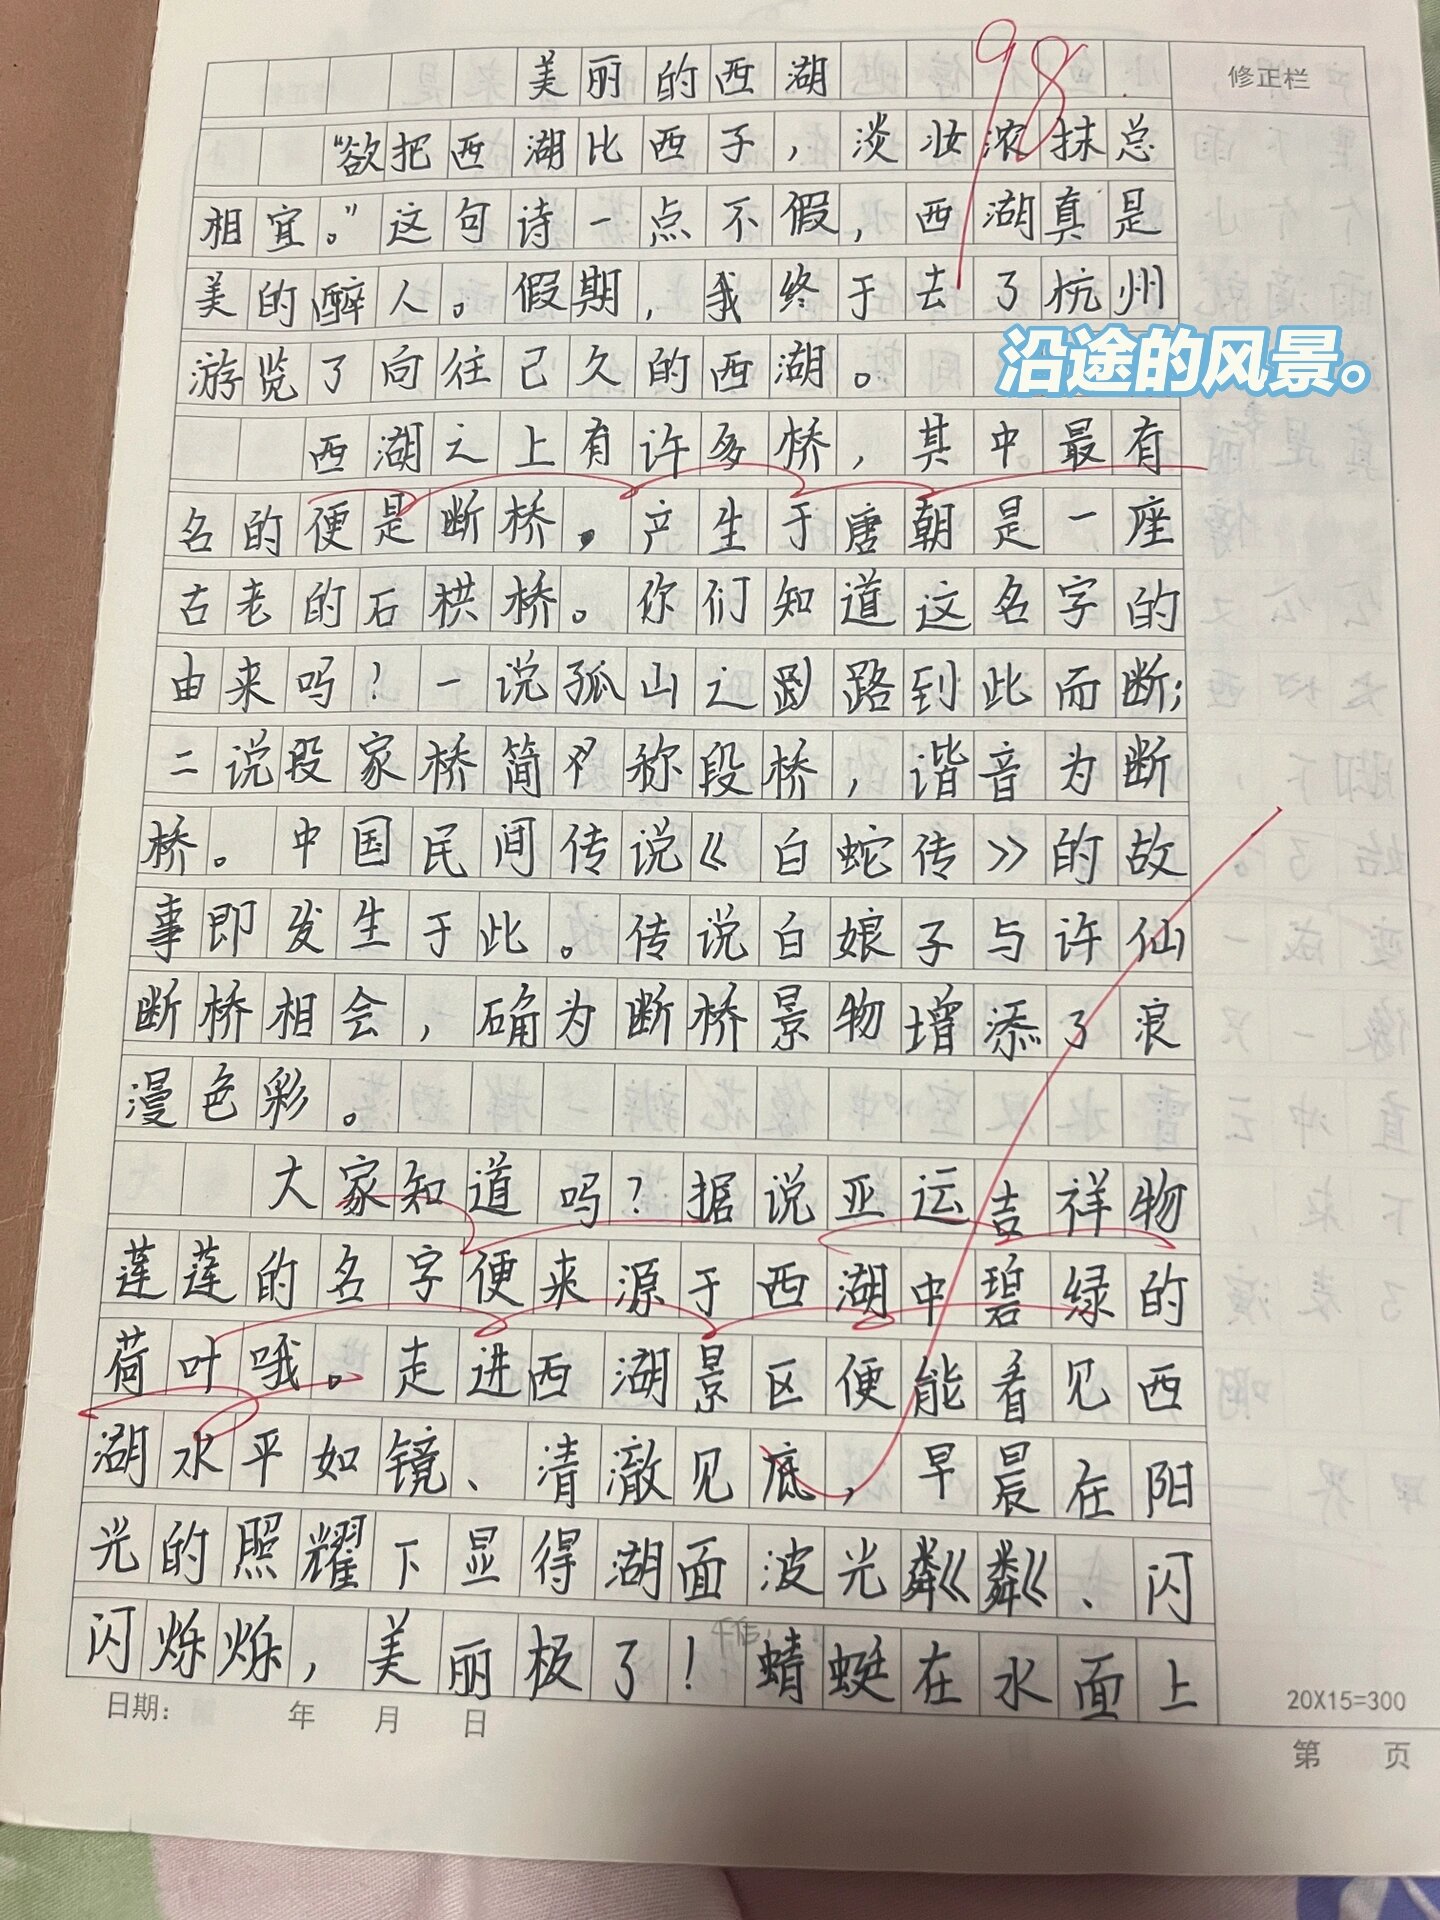 美丽的西湖
98
修正栏
“欲把西湖比西子,淡妆浓抹总
相宜。”这句诗一点不假,西湖真是
美的醉人。假期,我终于去了杭州
游览了向往已久的西湖。
沿途的风景。
西湖之上有许多桥,其中最有
名的便是断桥,产生于唐朝是一座
古老的石拱桥。你们知道这名字的
由来吗?一说孤山之路到此而断;
二说段家桥简称段桥,谐音为断
桥。中国民间传说《白蛇传》的故
事即发生于此。传说白娘子与许仙
断桥相会,确为断桥景物增添了浪
漫色彩。
大家知道吗?据说亚运吉祥物
莲莲的名字便来源于西湖中碧绿的
荷叶哦。走进西湖景区便能看见西
湖水平如镜、清澈见底,早晨在阳
光的照耀下显得湖面波光粼粼、闪
闪烁烁,美丽极了!蜻蜓在水面上
日期: 年 月 日
20X15=300
第 页